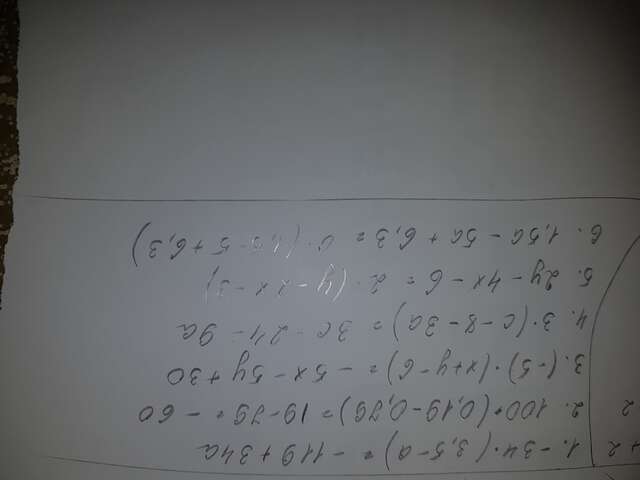 1. -34·(3,5-a) = -119+34a
2. 100·(0,19-0,79)=19-79=-60
3. (-5)·(x+y-6)=-5x-5y+30
4. 3·(c-8-3a)=3c-24-9a
5. 2y-4x-6=2·(y-2x-3)
6. 1,5a-5a+6,3=
+2
2